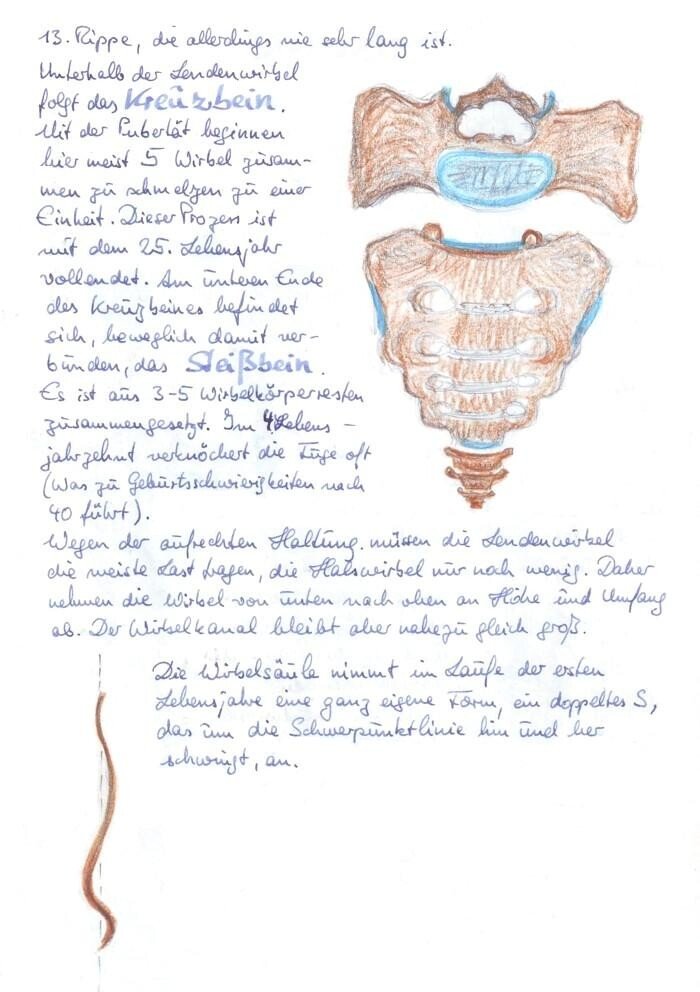 13. Rippe, die allerdings nie sehr lang ist.
Unterhalb der Lendenwirbel
folgt das Kreuzbein.
Mit der Pubertät beginnen
hier meist 5 Wirbel zusam-
men zu schmelzen zu einer
Einheit. Dieser Prozess ist
mit dem 25. Lebensjahr
vollendet. Am unteren Ende
des Kreuzbeines befindet
sich, beweglich damit ver-
bunden, das Steißbein.
Es ist aus 3-5 Wirbelkörperresten
zusammengesetzt. Im 4 Lebens-
jahrzehnt verknöchert die Fuge oft
(Was zu Geburtsschwierigkeiten nach
40 führt).
Wegen der aufrechten Haltung müssen die Lendenwirbel
die meiste Last tragen, die Halswirbel nur noch wenig. Daher
nehmen die Wirbel von unten nach oben an Höhe und Umfang
ab. Der Wirbelkanal bleibt aber nahezu gleich groß.
Die Wirbelsäule nimmt im Laufe der ersten
Lebensjahre eine ganz eigene Form, ein doppeltes S,
das um die Schwerpunktlinie hin und her
schwingt, an.